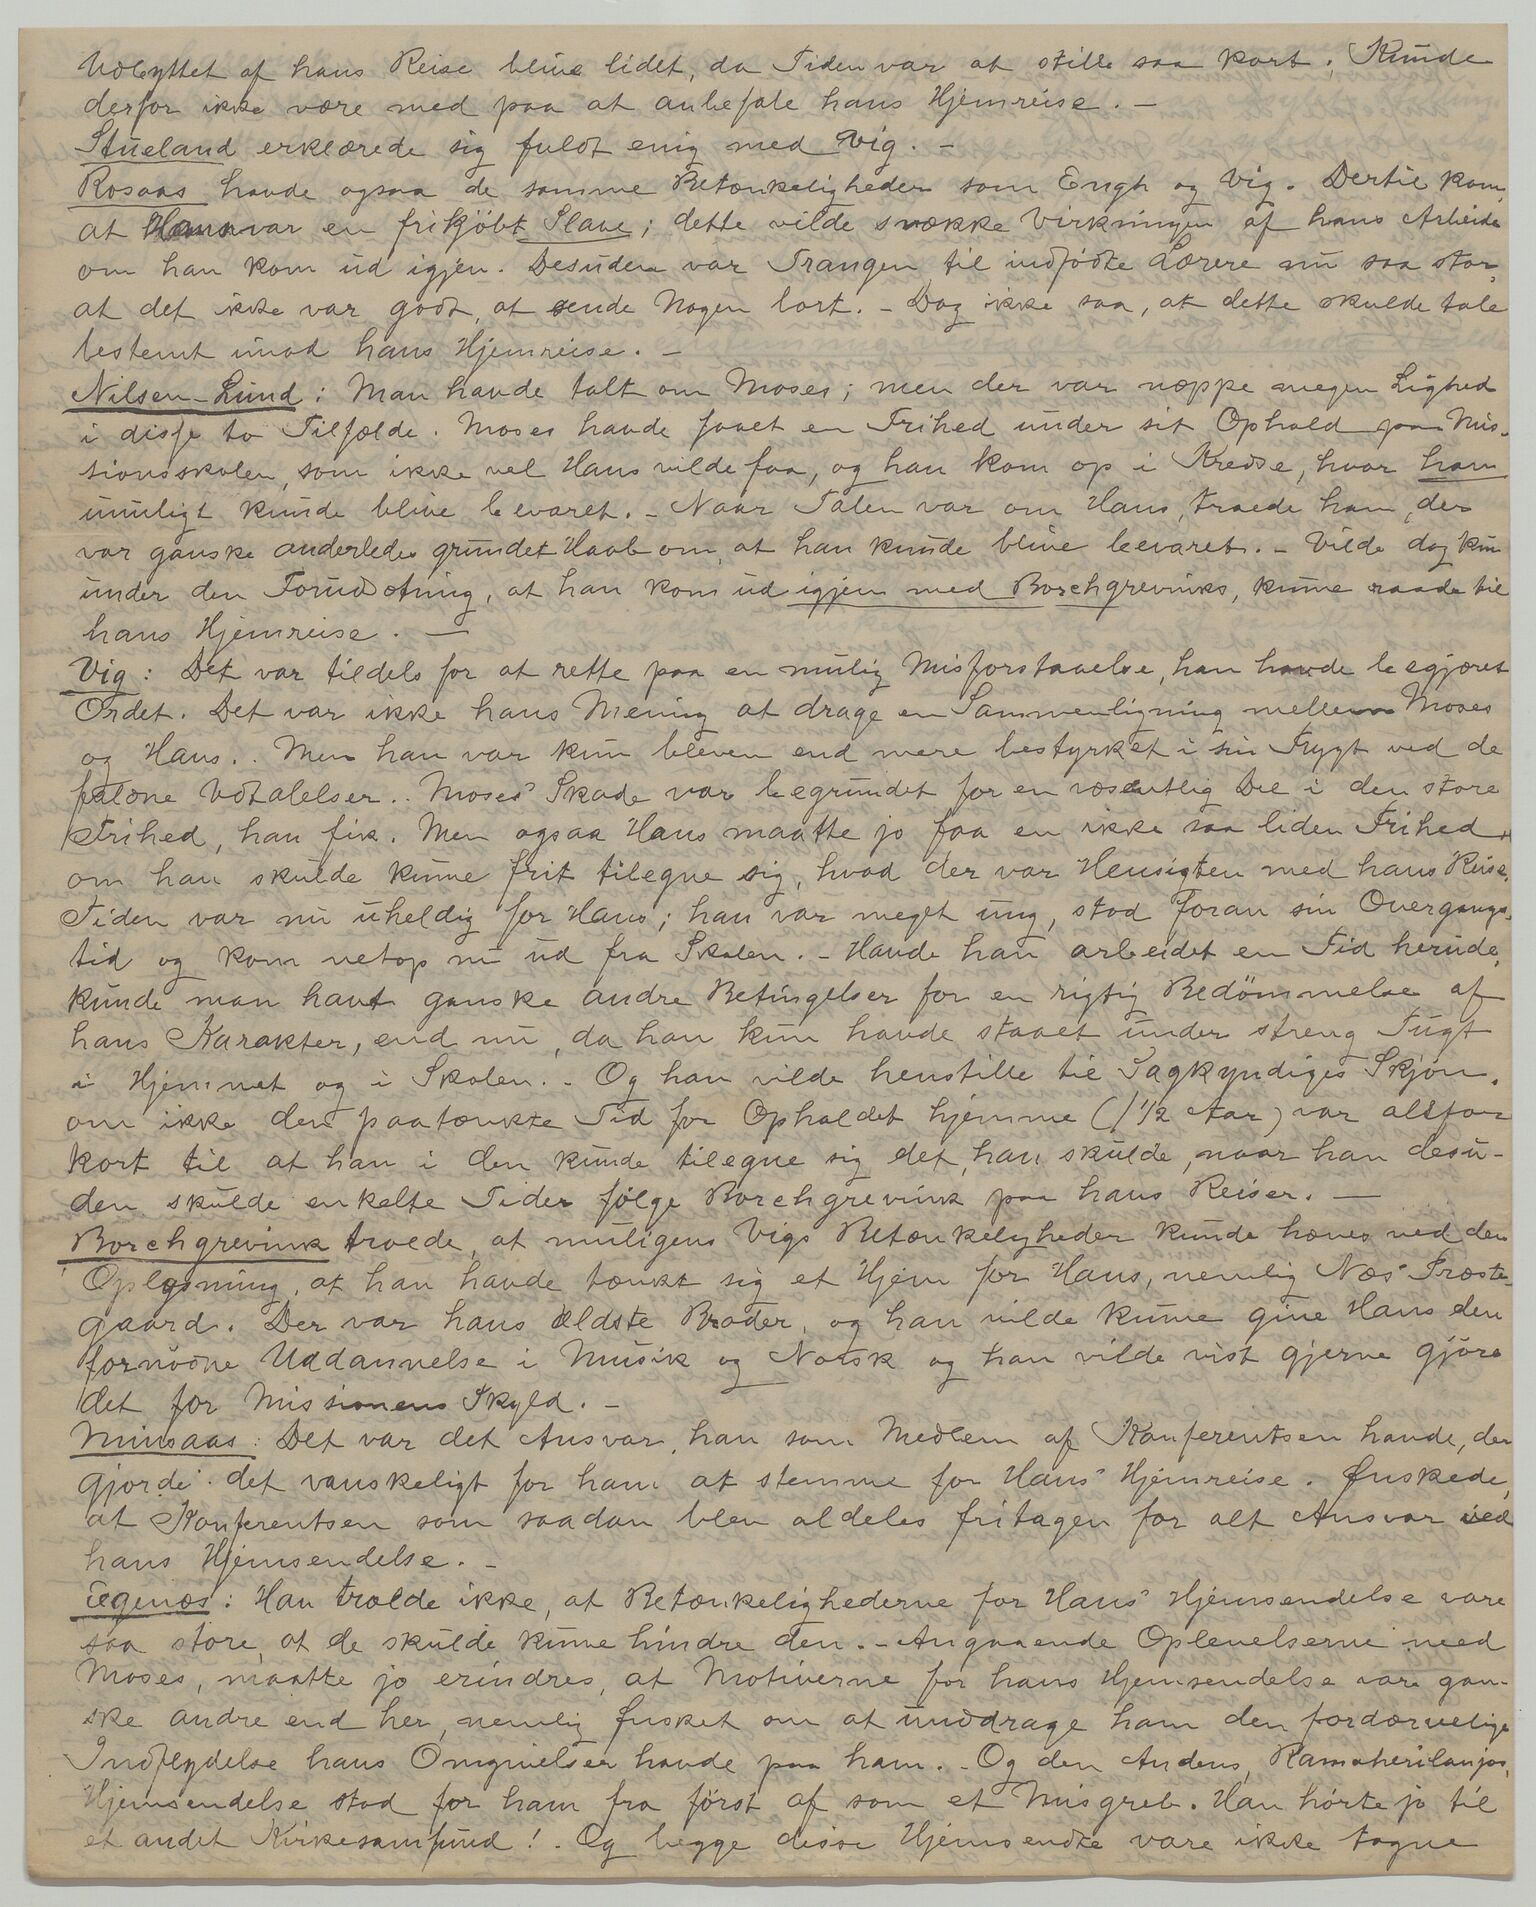 Udbyttet af hans Reise blive lidet, da Tiden var at stille saa kort. Kunde
derfor ikke være med paa at anbefale hans Hjemreise. —
Stueland erklærede sig fuldt enig med Vig. —
Rosaas havde ogsaa de samme Betænkeligheder som Engh og Vig. Dertil kom,
at Hans var en frikjöbt Slave; dette vilde svække Virkningen af hans Arbeide
om han kom ud igjen. Desuden var Trangen til indfödte Lærere nu saa stor,
at det ikke var godt, at sende Nogen bort. – Dog ikke saa, at dette skulde tale
bestemt imod hans Hjemreise. —
Nilsen-Lund: Man havde talt om Moses; men der var neppe megen Lighed
i disse to Tilfælde. Moses havde faaet en Frihed under sit Ophold paa Mis-
sionsskolen, som ikke vel Hans vilde faa, og han kom op i Kredse, hvor han
umuligt kunde blive bevaret. – Naar Talen var om Hans, troede han, der
var ganske anderledes grundet Haab om, at han kunde blive bevaret. – Vilde dog kun
under den Forudsætning, at han kom ud igjen med Borchgrevinks, kunne raade til
hans Hjemreise. —
Vig: Det var tildels for at rette paa en mulig Misforstaaelse, han havde begjæret
Ordet. Det var ikke hans Mening at drage en Sammenligning mellem Moses
og Hans. . Men han var kun bleven end mere bestyrket i sin Frygt ved de
faldne Udtalelser. . Moses' Skade var begrundet for en væsentlig Del i den store
Frihed, han fik. Men ogsaa Hans maatte jo faa en ikke saa liden Frihed,
om han skulde kunne frit tilegne sig, hvad der var Hensigten med hans Reise.
Tiden var nu uheldig for Hans; han var meget ung, stod foran sin Overgangs-
tid og kom netop nu ud fra Skolen. – Havde han arbeidet en Tid herude,
kunde man havt ganske andre Betingelser for en rigtig Bedömmelse af
hans Karakter, end nu, da han kun havde staaet under streng Tugt
i Hjemmet og i Skolen. – Og han vilde henstille til Sagkyndiges Skjön,
om ikke den paatænkte Tid for Opholdet hjemme (1 1/2 Aar) var altfor
kort til at han i den kunde tilegne sig det, han skulde, naar han desu-
den skulde enkelte Tider fölge Borchgrevink paa hans Reiser. —
Borchgrevink troede, at muligens Vigs Betænkeligheder kunde hæves ved den
Oplysning, at han havde tænkt sig et Hjem for Hans, nemlig Næs' Præste-
gaard. Der var hans ældste Broder, og han vilde kunne give Hans den
fornödne Uddannelse i Musik og Norsk og han vilde vist gjerne gjöre
det for Missionens Skyld. –
Minsaas: Det var det Ansvar, han som Medlem af Konferentsen havde, der
gjorde det vanskeligt for ham at stemme for Hans' Hjemreise. Ønskede,
at Konferentsen som saadan blev aldeles fritagen for alt Ansvar ved
hans Hjemsendelse. –
Egenæs: Han troede ikke, at Betænkelighederne for Hans' Hjemsendelse vare
saa store, at de skulde kunne hindre den. – Angaaende Oplevelserne med
Moses, maatte jo erindres, at Motiverne for hans Hjemsendelse vare gan-
ske andre end her, nemlig Ønsket om at unddrage ham den fordærvelige
Indflydelse hans Omgivelser havde paa ham. – Og den Andens, Ramaherilanjas,
Hjemsendelse stod for ham fra först af som et Misgreb. Han hörte jo til
et andet Kirkesamfund! – Og begge disse Hjemsendte vare ikke tagne